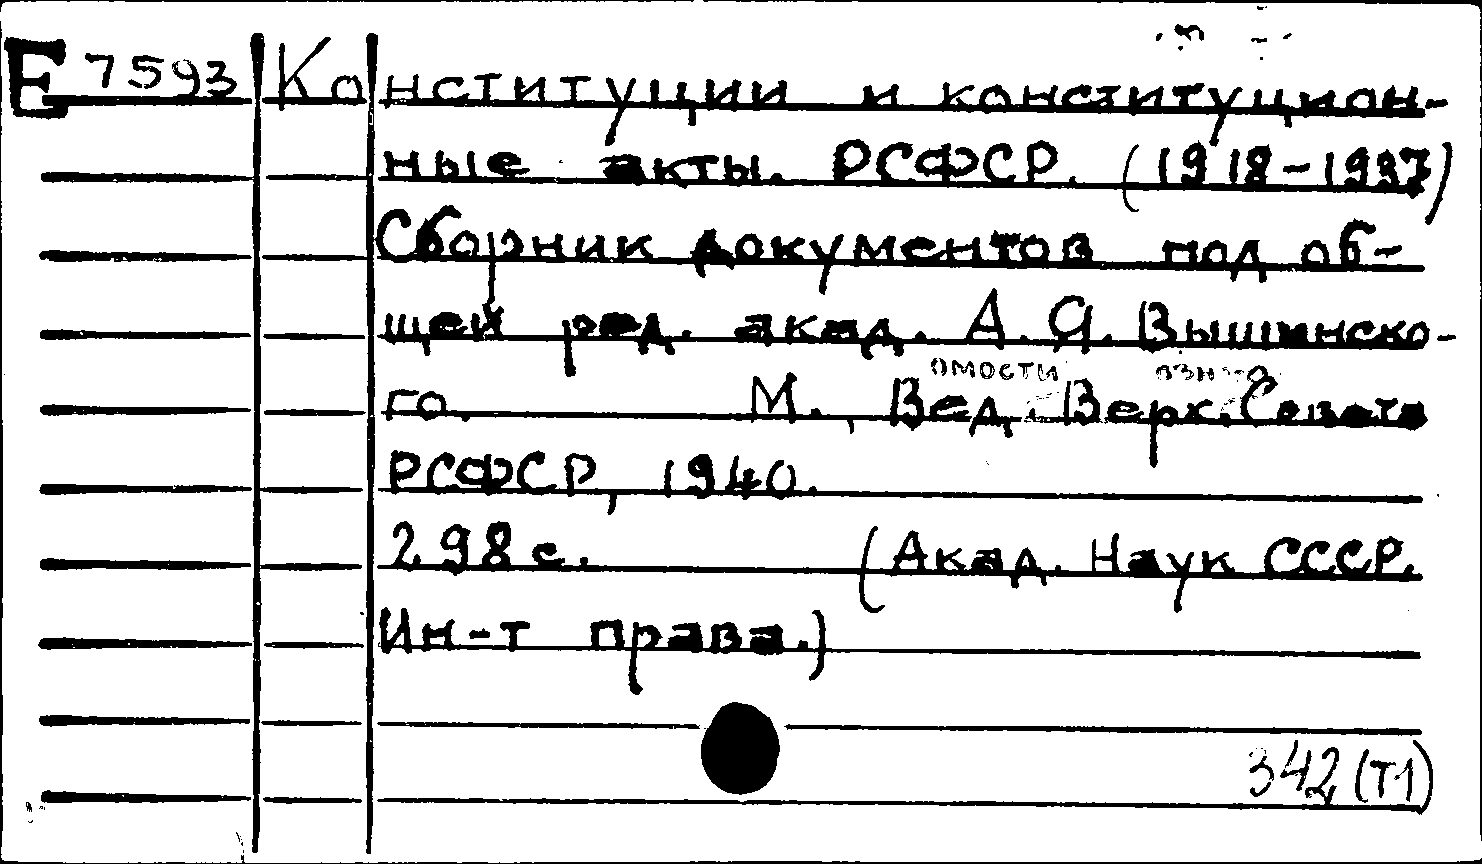 E 7593 Конституции и конституцион-
ные акты. РСФСР. (1918-1937)
Сборник документов под об-
щей ред. акад. А. Я. Вышинско-
омости
го. М., Вед. Верх. Совета
РСФСР, 1940.
298 с. (Акад. Наук СССР.
Ин-т права.)
342 (Т1)